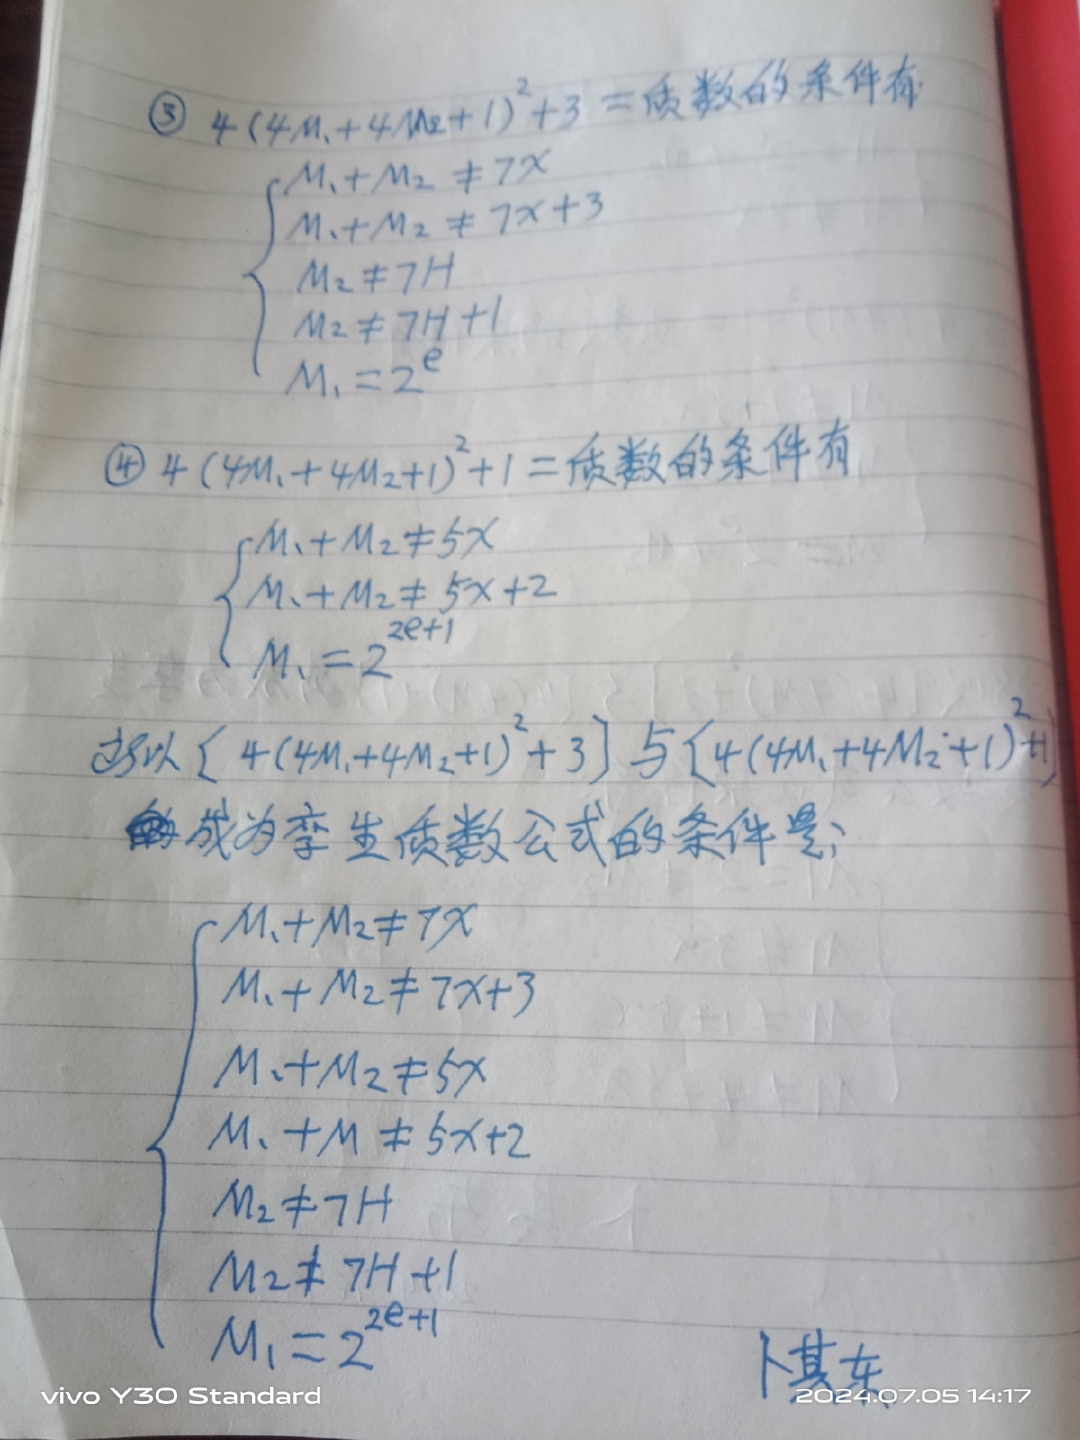 ③ 4(4M₁+4M₂+1)²+3=质数的条件有
M₁+M₂≠7x
M₁+M₂≠7x+3
M₂≠7H
M₂≠7H+1
M₁=2^e
④ 4(4M₁+4M₂+1)²+1=质数的条件有
M₁+M₂≠5x
M₁+M₂≠5x+2
M₁=2^{2e+1}
所以[4(4M₁+4M₂+1)²+3]与[4(4M₁+4M₂+1)²+1]
成为孪生质数公式的条件是;
M₁+M₂≠7x
M₁+M₂≠7x+3
M₁+M₂≠5x
M₁+M≠5x+2
M₂≠7H
M₂≠7H+1
M₁=2^{2e+1}
卜其东
vivo Y30 Standard
2024.07.05 14:17